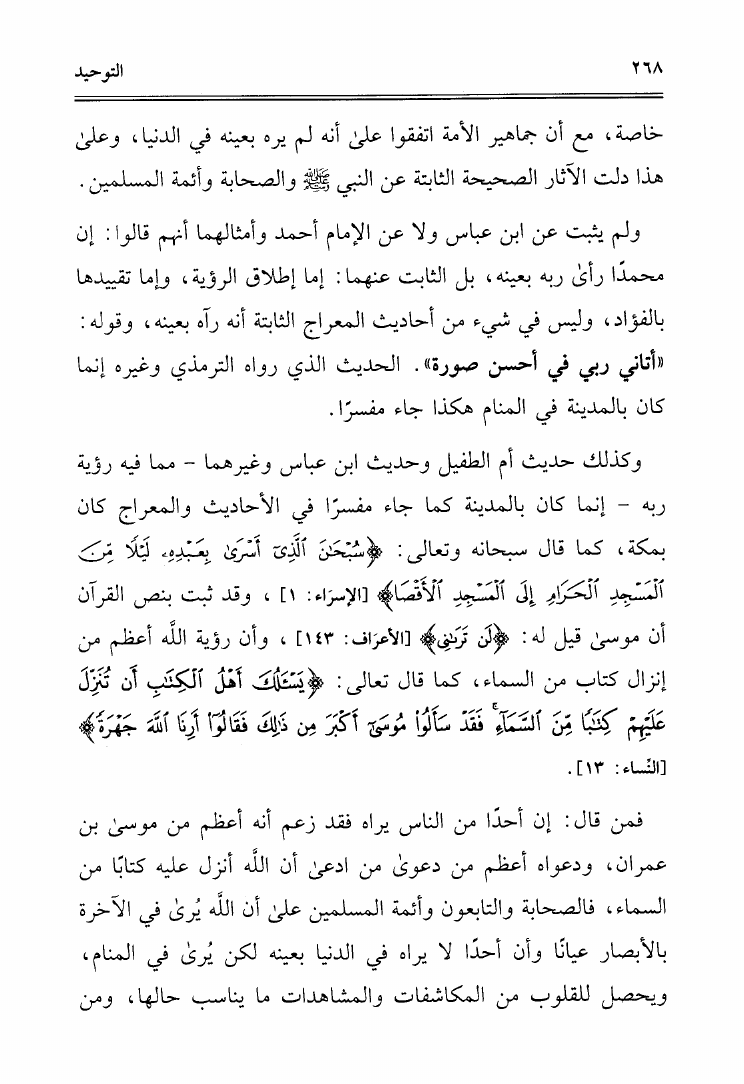 ٢٦٨ التوحيد
خاصة، مع أن جماهير الأمة اتفقوا علىٰ أنه لم يره بعينه في الدنيا، وعلىٰ
هذا دلت الآثار الصحيحة الثابتة عن النبي ﷺ والصحابة وأئمة المسلمين.
ولم يثبت عن ابن عباس ولا عن الإمام أحمد وأمثالهما أنهم قالوا: إن
محمدًا رأىٰ ربه بعينه، بل الثابت عنهما: إما إطلاق الرؤية، وإما تقييدها
بالفؤاد، وليس في شيء من أحاديث المعراج الثابتة أنه رآه بعينه، وقوله:
«أتاني ربي في أحسن صورة». الحديث الذي رواه الترمذي وغيره إنما
كان بالمدينة في المنام هكذا جاء مفسرًا.
وكذلك حديث أم الطفيل وحديث ابن عباس وغيرهما – مما فيه رؤية
ربه – إنما كان بالمدينة كما جاء مفسرًا في الأحاديث والمعراج كان
بمكة، كما قال سبحانه وتعالى: ﴿سُبْحَٰنَ ٱلَّذِىٓ أَسْرَىٰ بِعَبْدِهِۦ لَيْلًا مِّنَ
ٱلْمَسْجِدِ ٱلْحَرَامِ إِلَى ٱلْمَسْجِدِ ٱلْأَقْصَا﴾ [الإسرَاء: ١]، وقد ثبت بنص القرآن
أن موسىٰ قيل له: ﴿لَن تَرَىٰنِى﴾ [الأعرَاف: ١٤٣]، وأن رؤية اللَّه أعظم من
إنزال كتاب من السماء، كما قال تعالى: ﴿يَسْـَٔلُكَ أَهْلُ ٱلْكِتَٰبِ أَن تُنَزِّلَ
عَلَيْهِمْ كِتَٰبًا مِّنَ ٱلسَّمَآءِ ۚ فَقَدْ سَأَلُوا۟ مُوسَىٰٓ أَكْبَرَ مِن ذَٰلِكَ فَقَالُوٓا۟ أَرِنَا ٱللَّهَ جَهْرَةً﴾
[النِّساء: ١٣].
فمن قال: إن أحدًا من الناس يراه فقد زعم أنه أعظم من موسىٰ بن
عمران، ودعواه أعظم من دعوىٰ من ادعىٰ أن اللَّه أنزل عليه كتابًا من
السماء، فالصحابة والتابعون وأئمة المسلمين علىٰ أن اللَّه يُرىٰ في الآخرة
بالأبصار عيانًا وأن أحدًا لا يراه في الدنيا بعينه لكن يُرىٰ في المنام،
ويحصل للقلوب من المكاشفات والمشاهدات ما يناسب حالها، ومن